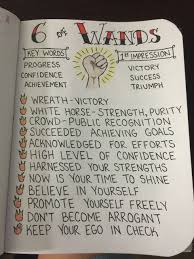 6 OF WANDS
KEY WORDS
PROGRESS
CONFIDENCE
ACHIEVEMENT
1ST IMPRESSION
VICTORY
SUCCESS
TRIUMPH
WREATH-VICTORY
WHITE HORSE-STRENGTH, PURITY
CROWD-PUBLIC RECOGNITION
SUCCEEDED ACHIEVING GOALS
ACKNOWLEDGED FOR EFFORTS
HIGH LEVEL OF CONFIDENCE
HARNESSED YOUR STRENGTHS
NOW IS YOUR TIME TO SHINE
BELIEVE IN YOURSELF
PROMOTE YOURSELF FREELY
DON'T BECOME ARROGANT
KEEP YOUR EGO IN CHECK